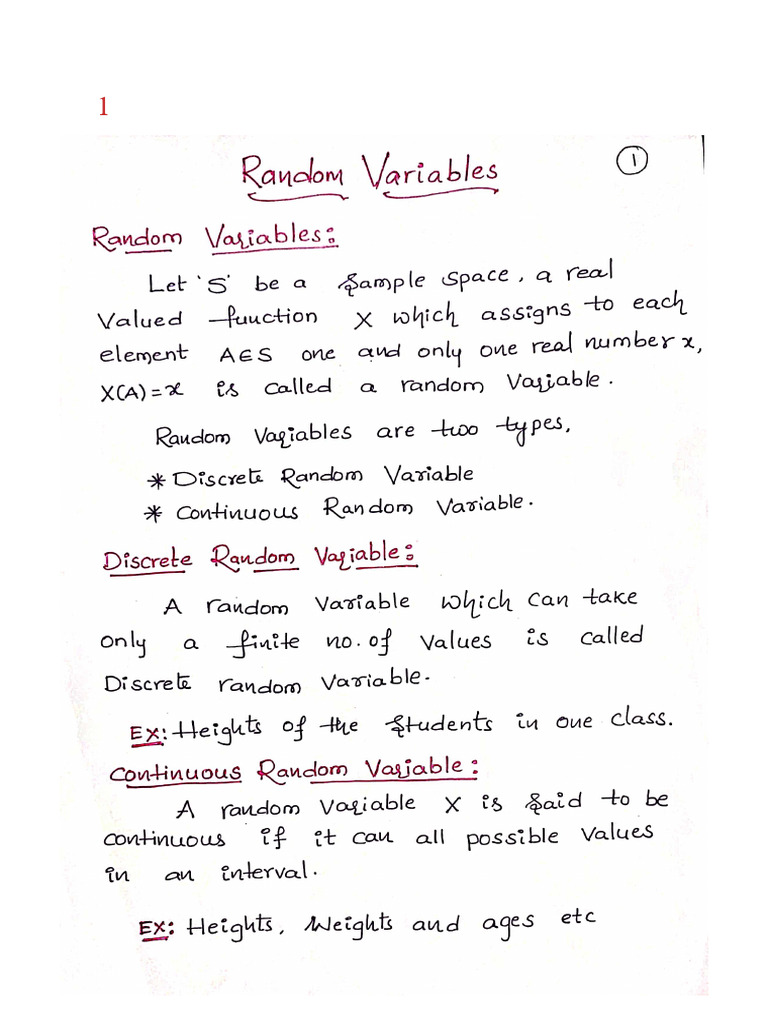 1
Random Variables
1
Random Variables:
Let 'S' be a Sample Space, a real
Valued function X which assigns to each
element A∈S one and only one real number x,
X(A)=x is called a random Variable.
Random Variables are two types,
* Discrete Random Variable
* Continuous Random Variable.
Discrete Random Variable:
A random Variable which can take
only a finite no. of values is called
Discrete random Variable.
Ex: Heights of the Students in one class.
Continuous Random Variable:
A random Variable X is Said to be
continuous if it can all possible values
in an interval.
Ex: Heights, Weights and ages etc